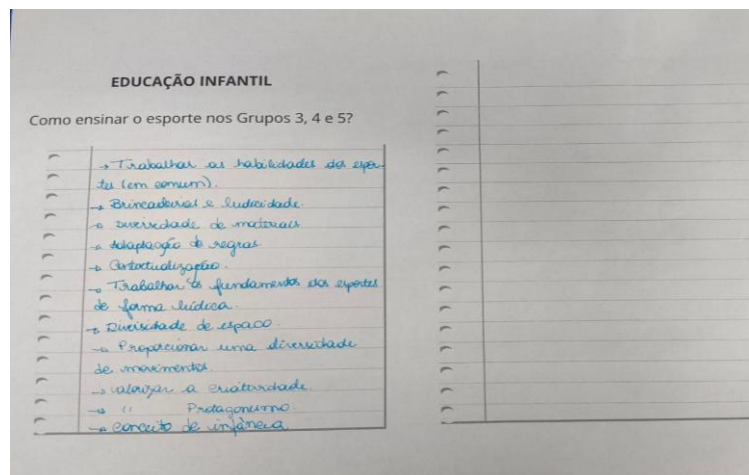 EDUCAÇÃO INFANTIL
Como ensinar o esporte nos Grupos 3, 4 e 5?
→ Trabalhar as habilidades dos espor-
tes (em comum).
→ Brincadeiras e ludicidade.
→ Diversidade de materiais
→ Adaptação de regras
→ Contextualização.
→ Trabalhar os fundamentos dos esportes
de forma lúdica.
→ Diversidade de espaço.
→ Proporcionar uma diversidade
de movimentos.
→ valorizar a criatividade.
→ " Protagonismo.
→ conceito de infância